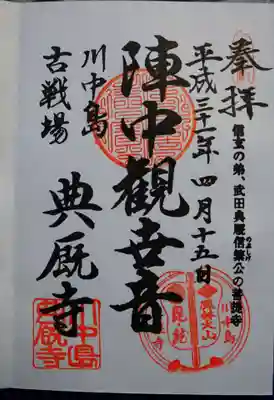 奉拝
信玄の弟、武田典厩信繁公の菩提寺
のぶしげ
平成三十一年四月十五日
陣中觀世音
川中島
古戦場
典厩寺
川中島
典厩寺